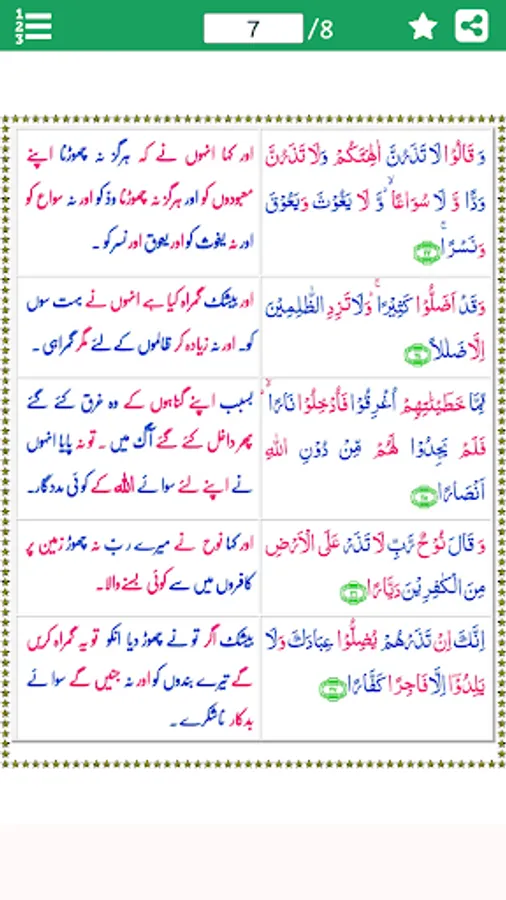 1
2
3
7 /8
وَ قَالُوۡا لَا تَذَرُنَّ اٰلِهَتَكُمۡ وَلَا تَذَرُنَّ
وَدًّا وَّ لَا سُوَاعًا ۙ وَّ لَا يَغُوۡثَ وَيَعُوۡقَ
وَنَسۡرًا ۚ ﴿۲۳﴾
اور کہا انہوں نے کہ ہرگز نہ چھوڑنا اپنے
معبودوں کو اور ہرگز نہ چھوڑنا ودّ کو اور نہ سواع کو
اور نہ یغوث کو اور یعوق اور نسر کو ۔
وَقَدۡ اَضَلُّوۡا كَثِيۡرًا ۚ وَلَا تَزِدِ الظّٰلِمِيۡنَ
اِلَّا ضَلٰلًا ﴿۲۴﴾
اور بیشک گمراہ کیا ہے انہوں نے بہت سوں
کو۔ اور نہ زیادہ کر ظالموں کے لئے مگر گمراہی ۔
مِمَّا خَطِيۡٓـٰٔتِهِمۡ اُغۡرِقُوۡا فَاُدۡخِلُوۡا نَارًا ۙ
فَلَمۡ يَجِدُوۡا لَهُمۡ مِّنۡ دُوۡنِ اللّٰهِ
اَنۡصَارًا ﴿۲۵﴾
بسبب اپنے گناہوں کے وہ غرق کئے گئے
پھر داخل کئے گئے آگ میں ۔ تو نہ پایا انہوں
نے اپنے لئے سوائے اللہ کے کوئی مددگار۔
وَ قَالَ نُوۡحٌ رَّبِّ لَا تَذَرۡ عَلَى الۡاَرۡضِ
مِنَ الۡكٰفِرِيۡنَ دَيَّارًا ﴿۲۶﴾
اور کہا نوح نے میرے ربّ نہ چھوڑ زمین پر
کافروں میں سے کوئی بسنے والا۔
اِنَّكَ اِنۡ تَذَرۡهُمۡ يُضِلُّوۡا عِبَادَكَ وَلَا
يَلِدُوۡۤا اِلَّا فَاجِرًا كَفَّارًا ﴿۲۷﴾
بیشک اگر تو نے چھوڑ دیا انکو تو یہ گمراہ کریں
گے تیرے بندوں کو اور نہ جنیں گے سوائے
بدکار ناشکرے ۔